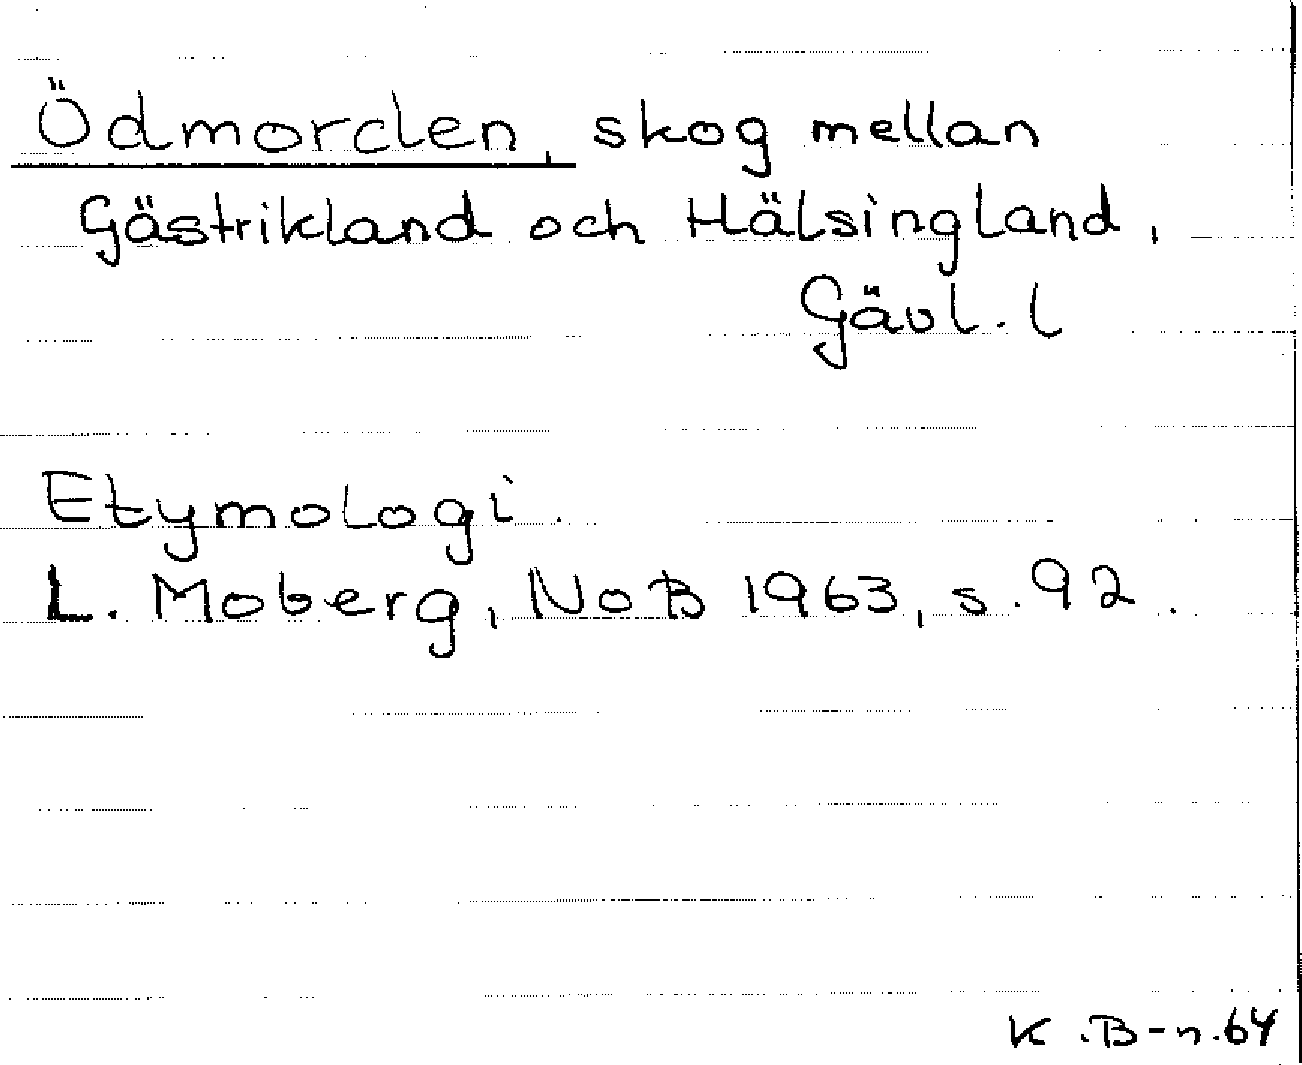 Ödmorden, skog mellan
Gästrikland och Hälsingland,
Gävl. l
Etymologi.
L. Moberg, NoB 1963, s. 92.
K .B-n.64